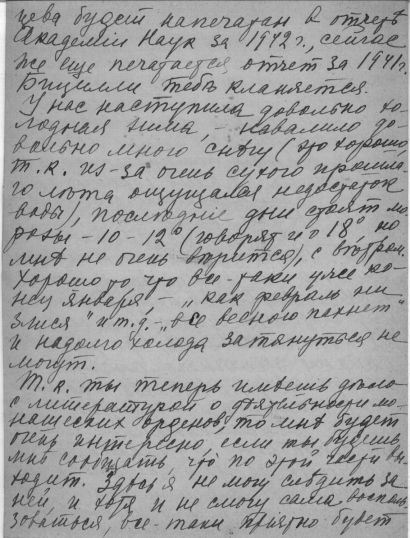 цева будет напечатан в отчетѣ
Академiи Наук за 1942 г., сейчас
же еще печатается отчет за 1941 г.
Бицилли тебѣ кланяется.
У нас наступила довольно хо-
лодная зима, – навалило до-
вольно много снѣгу (это хорошо
т. к. из-за очень сухого прошла-
го лѣта ощущался недостаток
воды), последнiе дни стоят мо-
розы – 10 – 12° (говорят и о 18° но
мнѣ не очень вѣрится), с вѣтром.
Хорошо то что все-таки уже ко-
нец января – „как февраль ни
злися" и т. д. – „все весною пахнет"
и надолго холода затянуться не
могут.
Т. к. ты теперь имѣешь дѣло
с литературой о дѣятельности мо-
нашеских орденов, то мнѣ будет
очень интересно, если ты будешь
мнѣ сообщать, что по этой части вы-
ходит. Здѣсь я не могу слѣдить за
ней, и хотя и не смогу сама восполь-
зоваться, все-таки прiятно будет